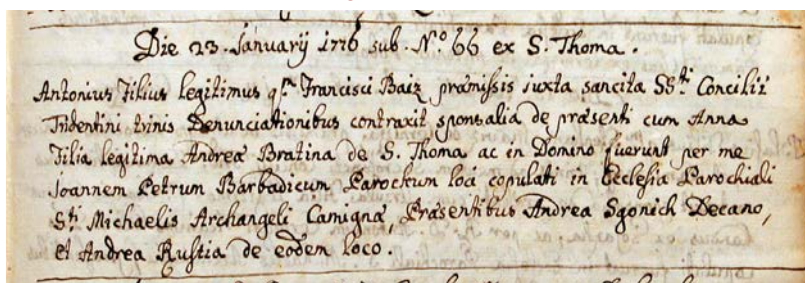 Die 23. Januarij 1776 sub. N.º 66 ex S. Thoma.
Antonius Filius legitimus q.m Francisci Baiz præmissis juxta sancita SS.ti Concilii
Tridentini trinis Denunciationibus contraxit sponsalia de præsenti cum Anna
Filia legitima Andreæ Bratina de S. Thoma ac in Domino fuerunt per me
Joannem Petrum Barbadicum Parochum loci copulati in Ecclesia Parochiali
S.ti Michaelis Archangeli Camignæ, Præsentibus Andrea Sgonich Decano,
et Andrea Rustia de eodem loco.